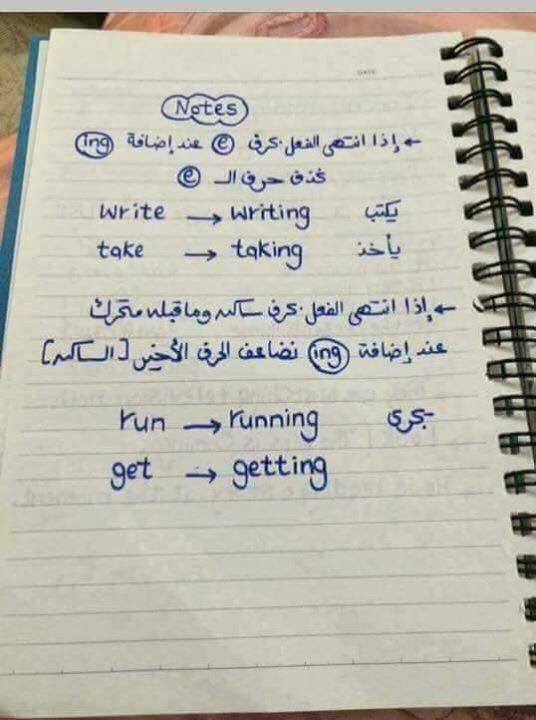 DATE
Notes
← إذا انتهى الفعل بحرف e عند إضافة ing
نحذف حرف الـ e
write → writing يكتب
take → taking يأخذ
← إذا انتهى الفعل بحرف ساكن وما قبله متحرك
عند إضافة ing نضاعف الحرف الأخير [الساكن]
run → running يجرى
get → getting